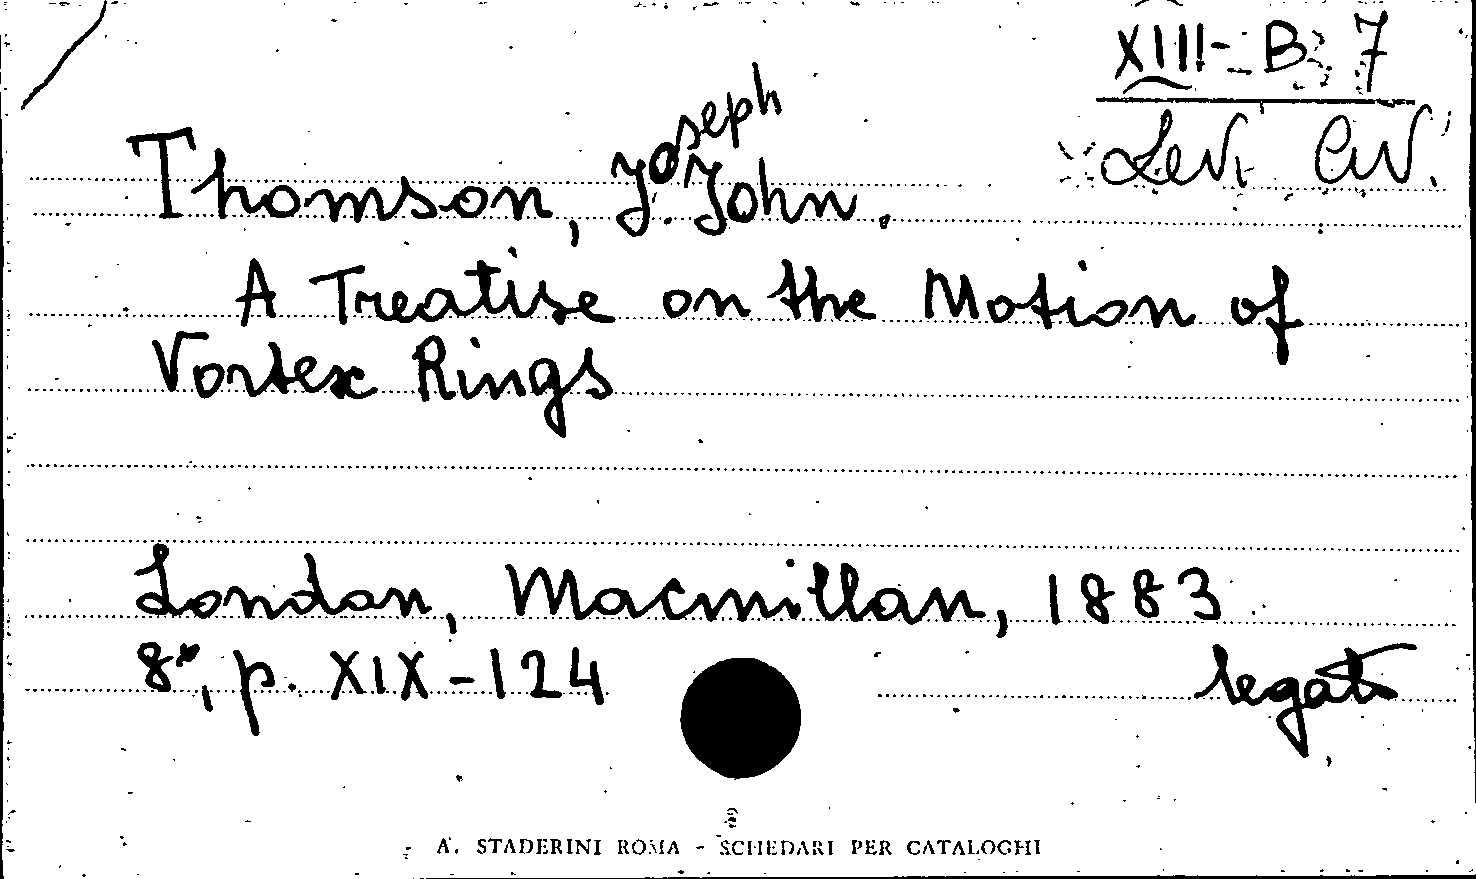 XIII- B 7
Levi Civ.
Thomson, Joseph John.
A Treatise on the Motion of
Vortex Rings
London, Macmillan, 1883
8°, p. XIX-124
legato
A. STADERINI ROMA - SCHEDARI PER CATALOGHI